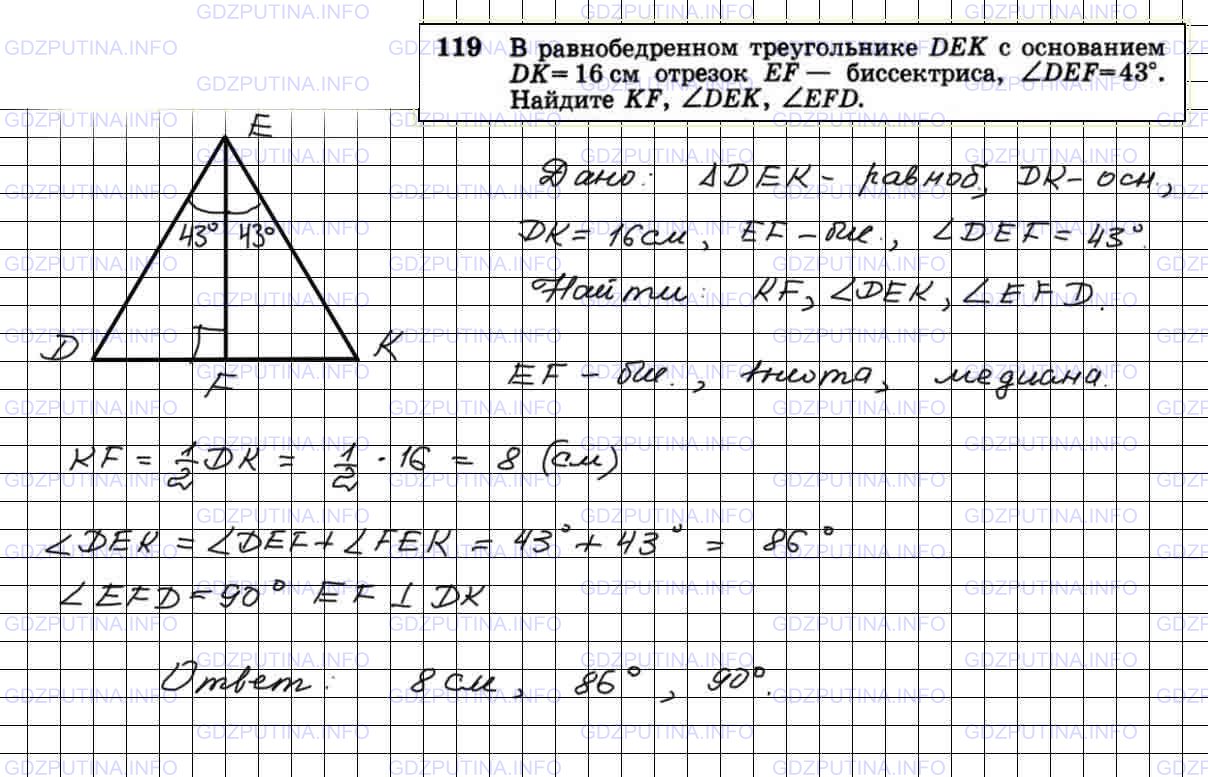 119 В равнобедренном треугольнике DEK с основанием
DK = 16 см отрезок EF — биссектриса, ∠DEF = 43°.
Найдите KF, ∠DEK, ∠EFD.
E
43° 43°
D
K
F
Дано: ΔDEK - равноб, DK - осн.,
DK = 16 см, EF - бис., ∠DEF = 43°.
Найти: KF, ∠DEK, ∠EFD.
EF - бис., высота, медиана.
KF = 1/2 DK = 1/2 · 16 = 8 (см)
∠DEK = ∠DEF + ∠FEK = 43° + 43° = 86°
∠EFD = 90° EF ⊥ DK
Ответ: 8 см, 86°, 90°.
GDZPUTINA.INFO